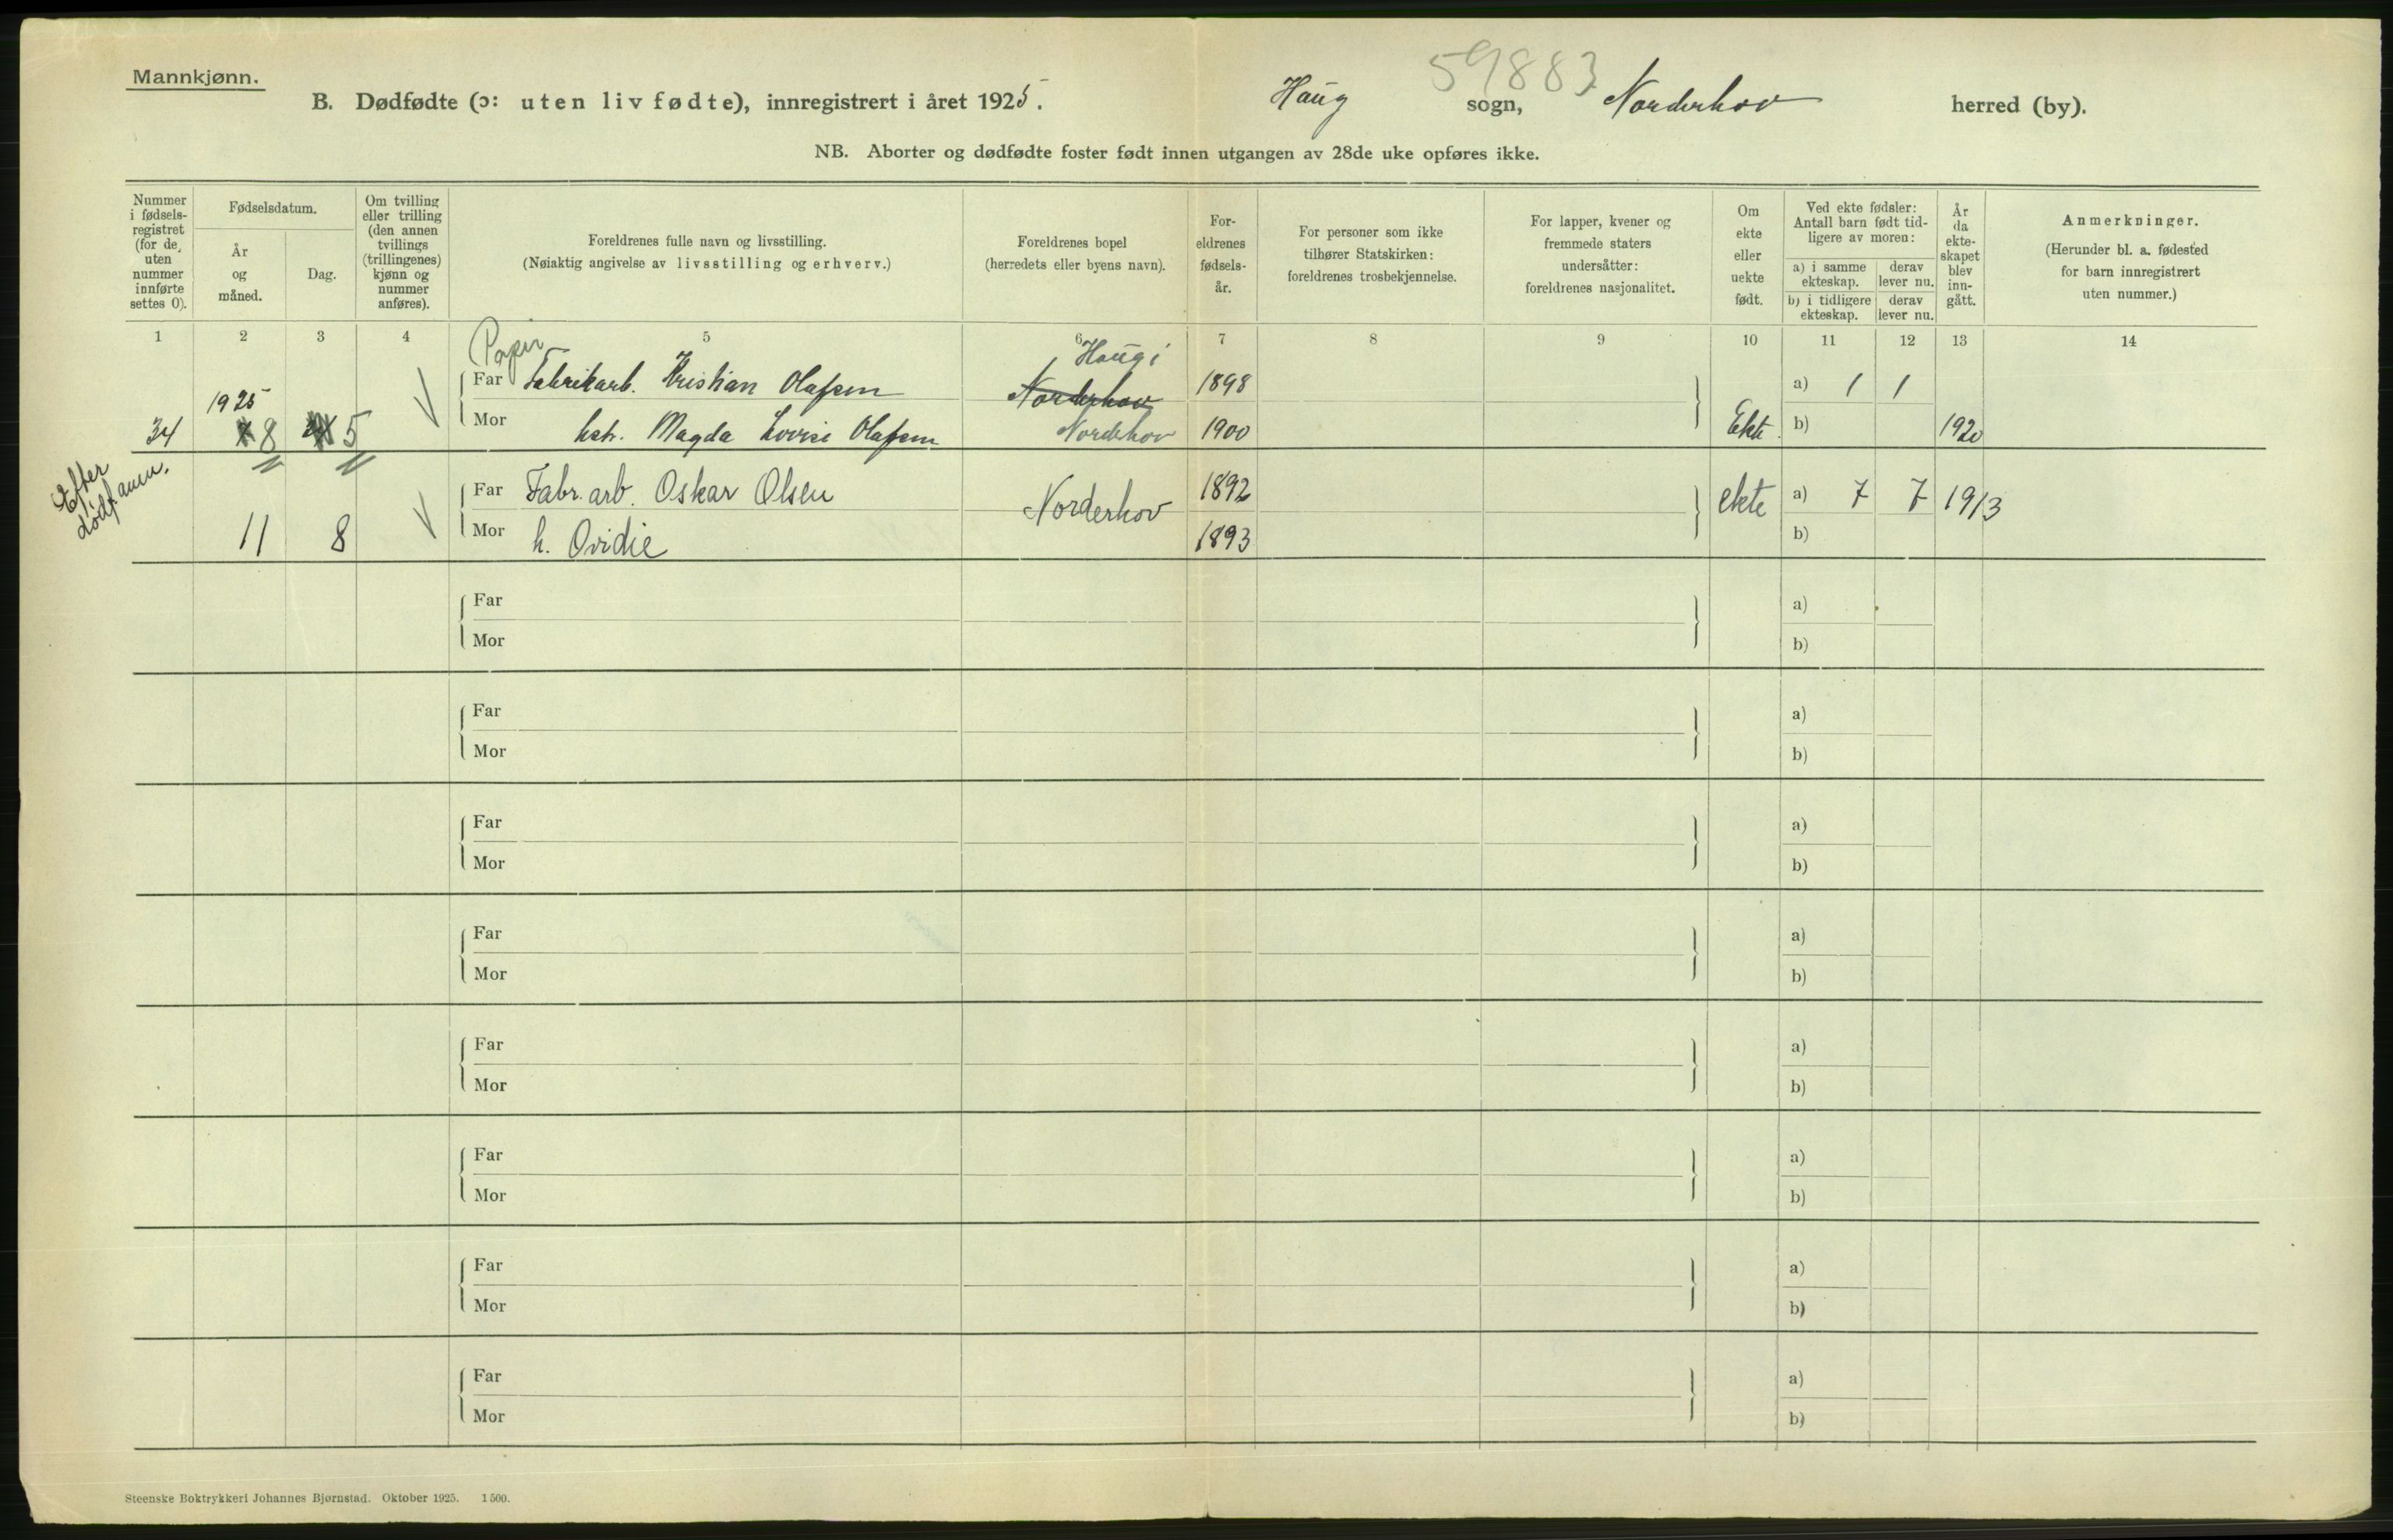 59883
Mannkjønn.
B. Dødfødte (ɔ: uten liv fødte), innregistrert i året 1925. Haug sogn, Norderhov herred (by).
NB. Aborter og dødfødte foster født innen utgangen av 28de uke opføres ikke.
Nummer i fødsels-registret (for de uten nummer innførte settes 0).
Fødselsdatum.
År og måned.
Dag.
Om tvilling eller trilling (den annen tvillings (trillingenes) kjønn og nummer anføres).
Foreldrenes fulle navn og livsstilling.
(Nøiaktig angivelse av livsstilling og erhverv.)
Foreldrenes bopel
(herredets eller byens navn).
For-eldrenes fødsels-år.
For personer som ikke tilhører Statskirken: foreldrenes trosbekjennelse.
For lapper, kvener og fremmede staters undersåtter: foreldrenes nasjonalitet.
Om ekte eller uekte født.
Ved ekte fødsler: Antall barn født tid-ligere av moren:
a) i samme ekteskap.
derav lever nu.
b) i tidligere ekteskap.
derav lever nu.
År da ekte-skapet blev inn-gått.
Anmerkninger.
(Herunder bl. a. fødested for barn innregistrert uten nummer.)
1 2 3 4 5 6 7 8 9 10 11 12 13 14
Papir Haug i
Far Fabrikarb. Kristian Olafsen Norderhov 1898 a) 1 1
1925
34 8 5 Mor hstr. Magda Lovise Olafsen Norderhov 1900 Ekte b) 1920
Efter dødf. anm.
Far Fabr. arb. Oskar Olsen Norderhov 1892 ekte a) 7 7 1913
11 8 Mor h. Ovidie 1893 b)
Far a)
Mor b)
Far a)
Mor b)
Far a)
Mor b)
Far a)
Mor b)
Far a)
Mor b)
Far a)
Mor b)
Far a)
Mor b)
Far a)
Mor b)
Steenske Boktrykkeri Johannes Bjørnstad. Oktober 1925. 1500.